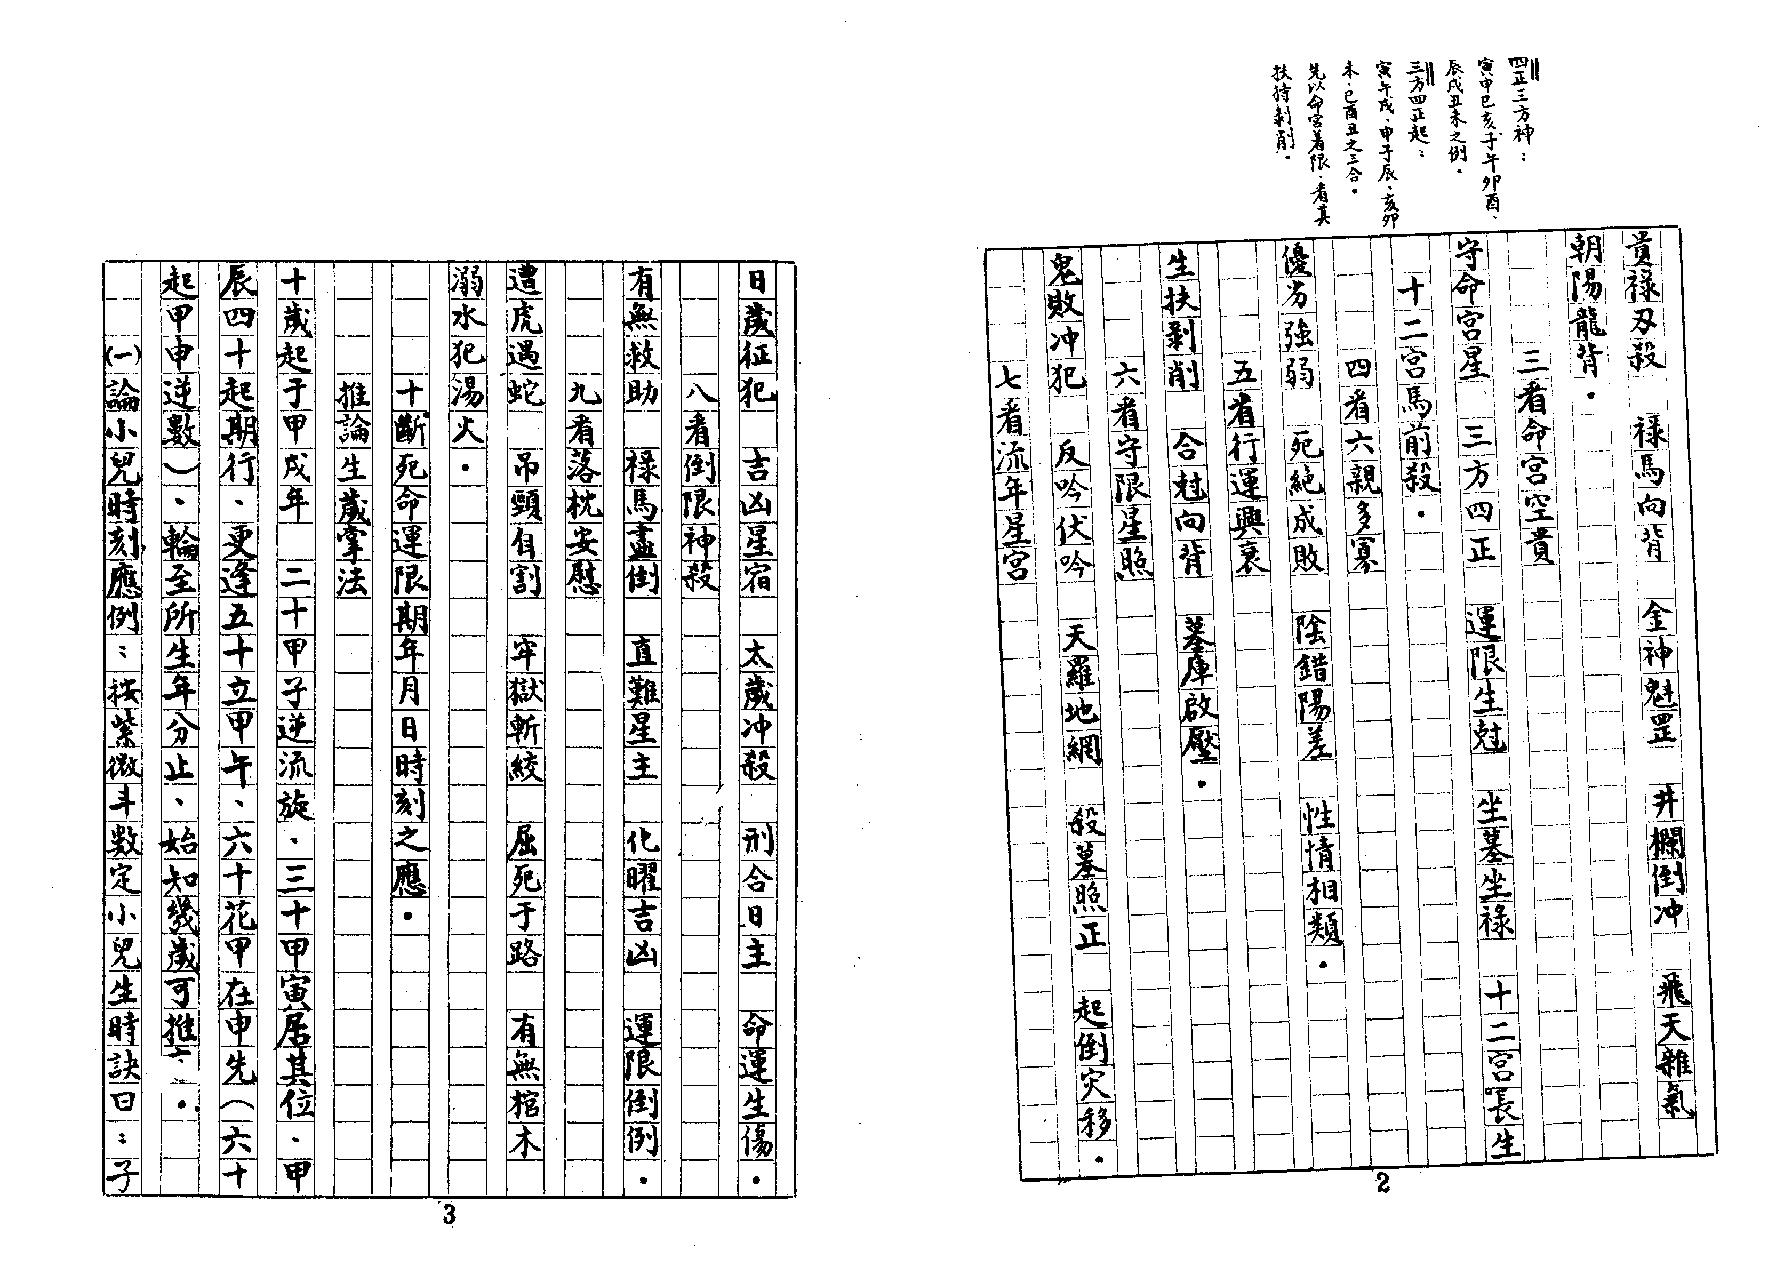 四正三方神：
寅申巳亥、子午卯酉、
辰戌丑未之例。
三方四正起：
寅午戌、申子辰、亥卯
未、巳酉丑之三合。
先以命宮着限，看其
扶持剥削。
貴祿刃殺　祿馬向背　金神魁罡　井欄倒冲　飛天雜氣
朝陽龍背。
三看命宮空貴
守命宮星　三方四正　運限生尅　坐墓坐祿　十二宮長生
十二宮馬前殺。
四看六親多寡
優劣強弱　死絕成敗　陰錯陽差　性情相類。
五看行運興衰
生扶剥削　合尅向背　墓庫啟壓。
六看守限星照
鬼敗冲犯　反吟伏吟　天羅地網　殺墓照正　起倒灾移。
七看流年星宮
2
日歲征犯　吉凶星宿　太歲冲殺　刑合日主　命運生傷。
八看倒限神殺
有無救助　祿馬盡倒　直難星主　化曜吉凶　運限倒例。
九看落枕安慰
遭虎遇蛇　吊頸自割　牢獄斬絞　屈死于路　有無棺木
溺水犯湯火。
十斷死命運限期年月日時刻之應。
推論生歲掌法
十歲起于甲戌年　二十甲子逆流旋、三十甲寅居其位、甲
辰四十起期行、更逢五十立甲午、六十花甲在申先（六十
起甲申逆數）、輪至所生年分止、始知幾歲可推亡。
(一)論小兒時刻應例：按紫微斗数定小兒生時訣曰：子
3